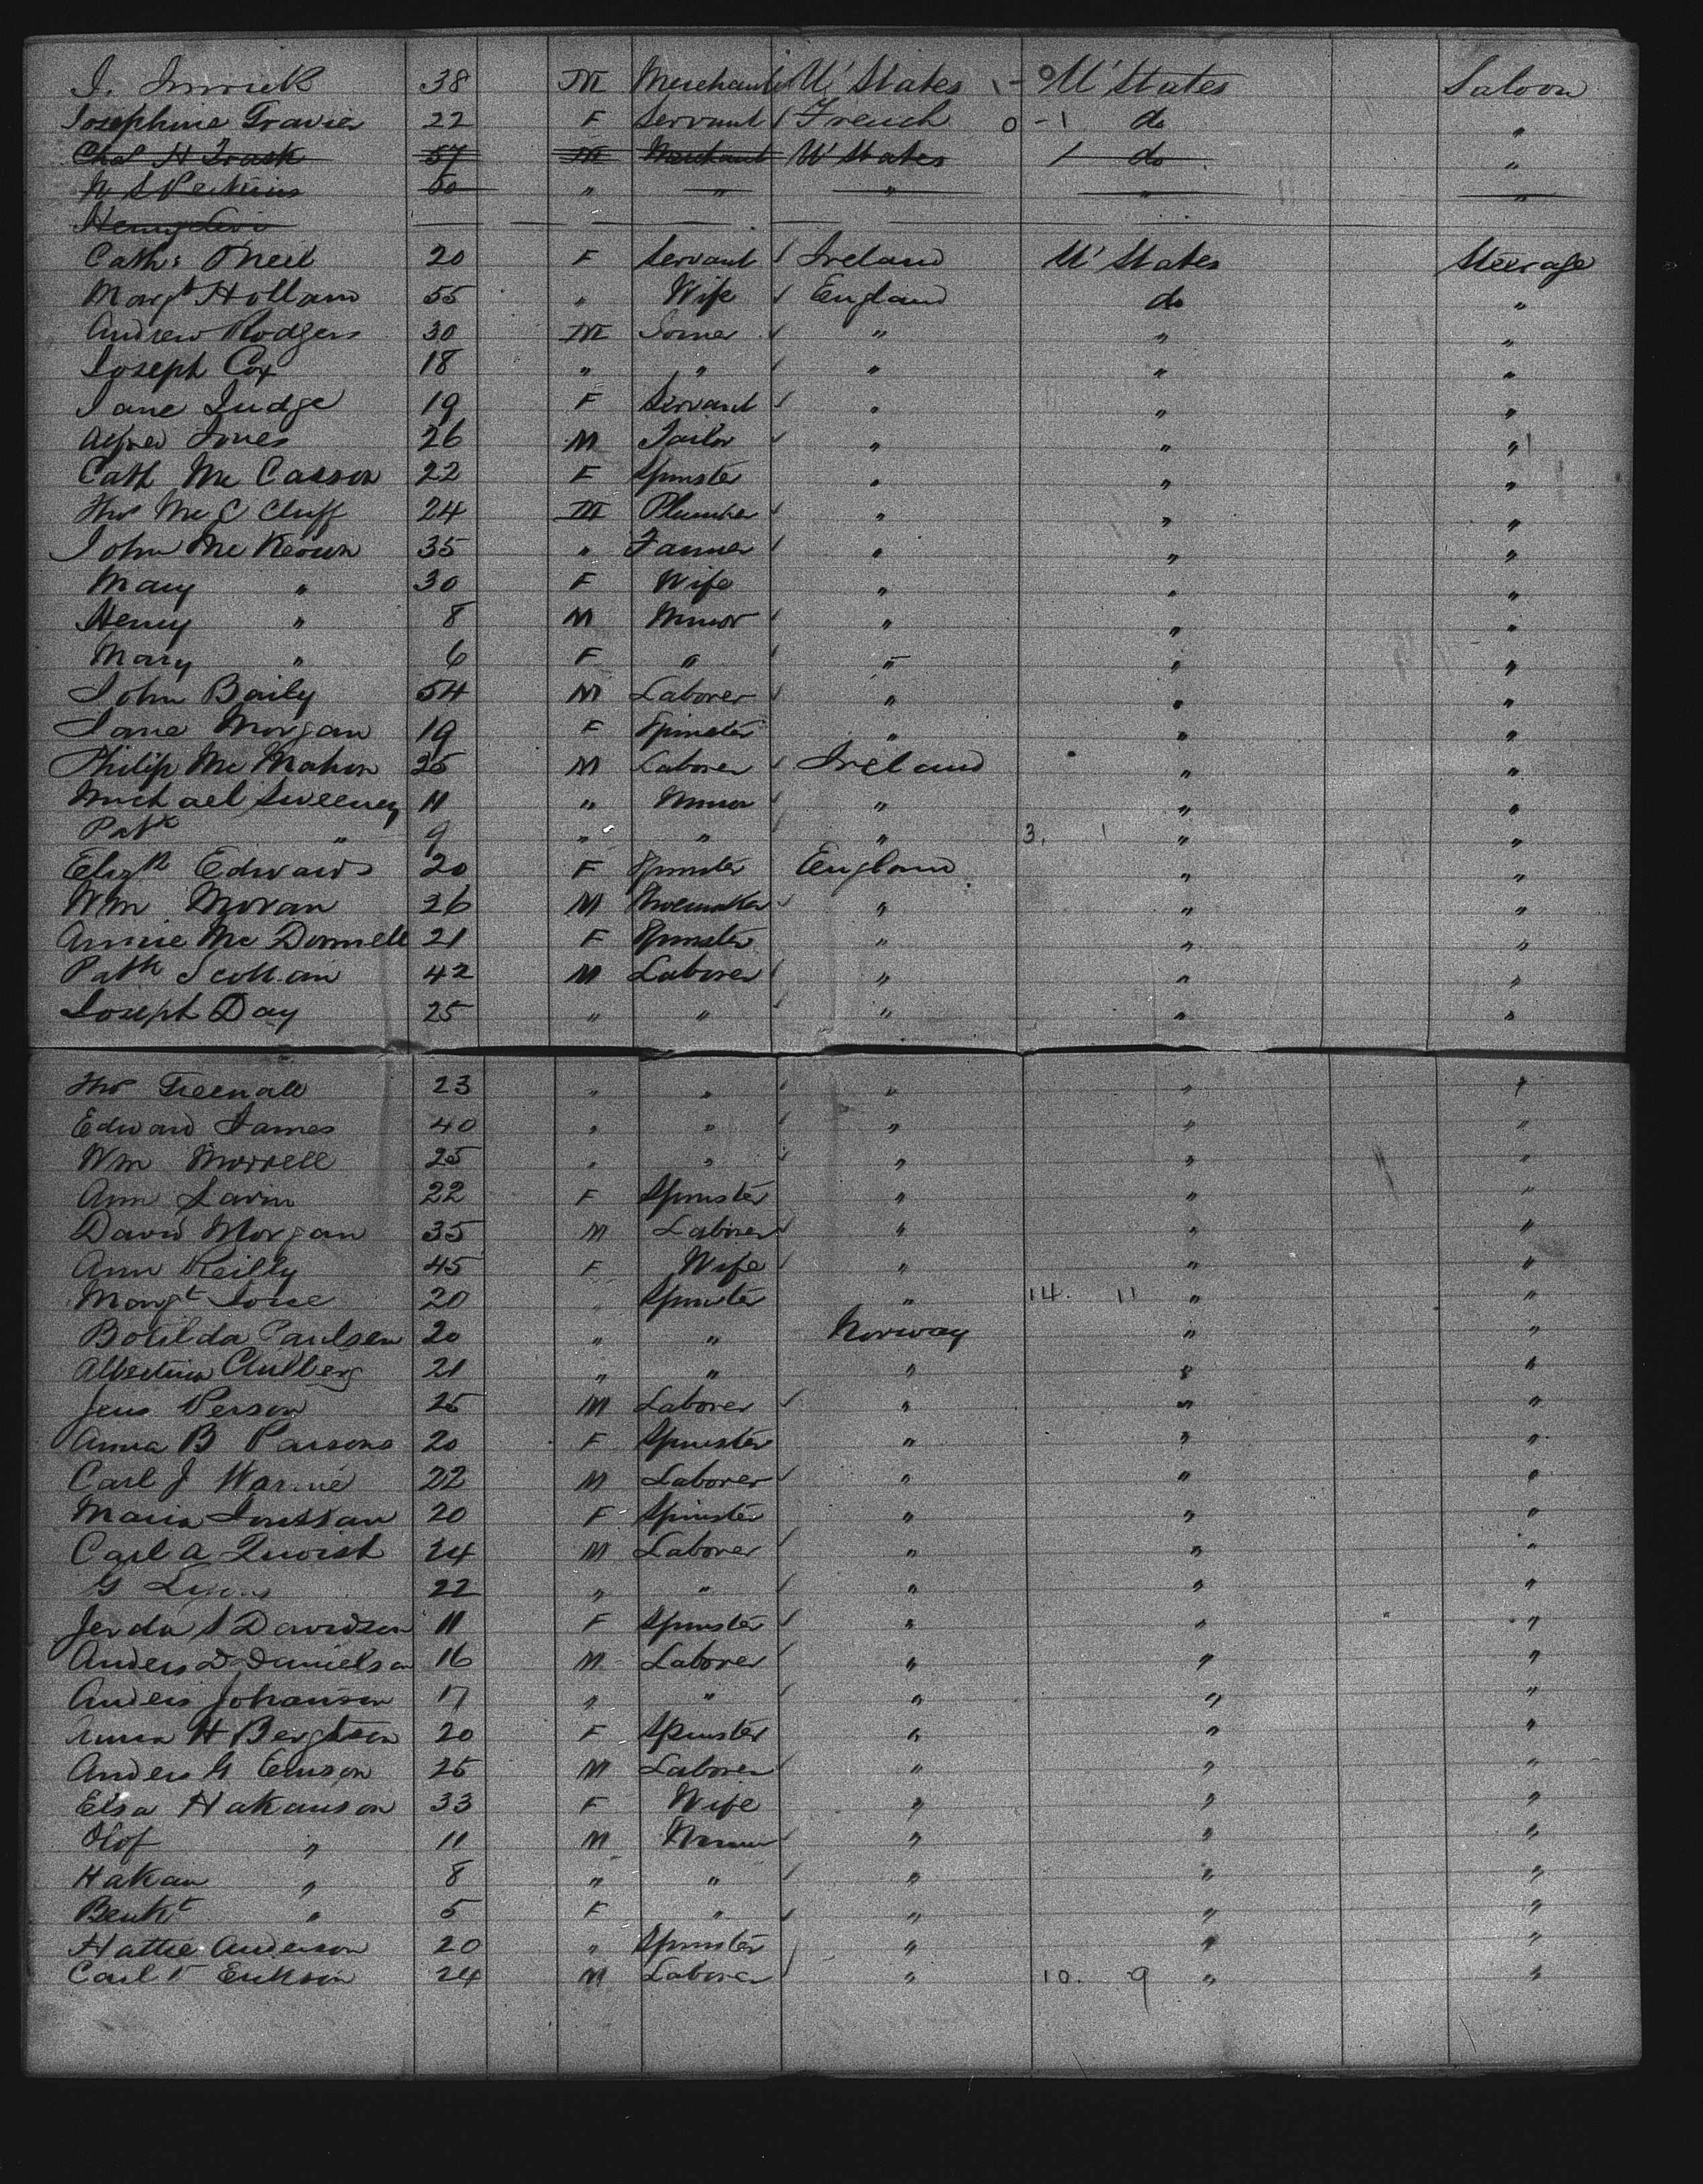 J. 38 M Merchant U' States U' States Saloon
Josephine Gravier 22 F Servant French 0 -1 do "
Chas H Trask 57 M Merchant U' States 1 do "
N S Perkins 50 " " " " "
Henry Levi
Cath: O'Neil 20 F Servant Ireland U' States Steerage
Margt Hollam 55 " Wife England do "
Andrew Rodgers 30 M " " "
Joseph Cox 18 " " " " "
Jane Judge 19 F Servant " " "
Alfred Jones 26 M Tailor " " "
Cath Mc Casson 22 F Spinster " " "
Thos Mc C Cluff 24 M Plumber " " "
John Mc Keown 35 " Farmer " " "
Mary " 30 F Wife " " "
Henry " 8 M Minor " " "
Mary " 6 F " " " "
John Baily 54 M Laborer " " "
Jane Morgan 19 F Spinster " " "
Philip Mc Mahon 35 M Laborer Ireland " "
Michael Sweeney 11 " Minor " " "
Patk " 9 " " " 3. 1 " "
Elizth Edwards 20 F Spinster England " "
Wm Moran 26 M Shoemaker " " "
Annie Mc Donnell 21 F Spinster " " "
Patk Scollan 42 M Laborer " " "
Joseph Day 25 " " " " "
Thos Greenall 23 " " " " "
Edward James 40 " " " " "
Wm Morrell 25 " " " " "
Ann Lavin 22 F Spinster " " "
David Morgan 35 M Laborer " " "
Ann Reilly 45 F Wife " " "
Margt 20 " Spinster " 14. 11 " "
Botilda Paulsen 20 " " Norway " "
Albertina 21 " " " " "
Jens Person 25 M Laborer " " "
Anna B Parsons 20 F Spinster " " "
Carl J 22 M Laborer " " "
Maria 20 F Spinster " " "
Carl A Qwist 24 M Laborer " " "
G 22 " " " " "
Jerda S Davidson 11 F Spinster " " "
Anders D Danielson 16 M Laborer " " "
Anders Johanson 17 " " " " "
Anna H Bergtson 20 F Spinster " " "
Anders G 25 M Laborer " " "
Elsa Hakanson 33 F Wife " " "
Olof " 11 M Minor " " "
Hakan " 8 " " " " "
Benkt " 5 F " " " "
Hattie Anderson 20 " Spinster " " "
Carl Erikson 24 M Laborer " 10. 9 " "